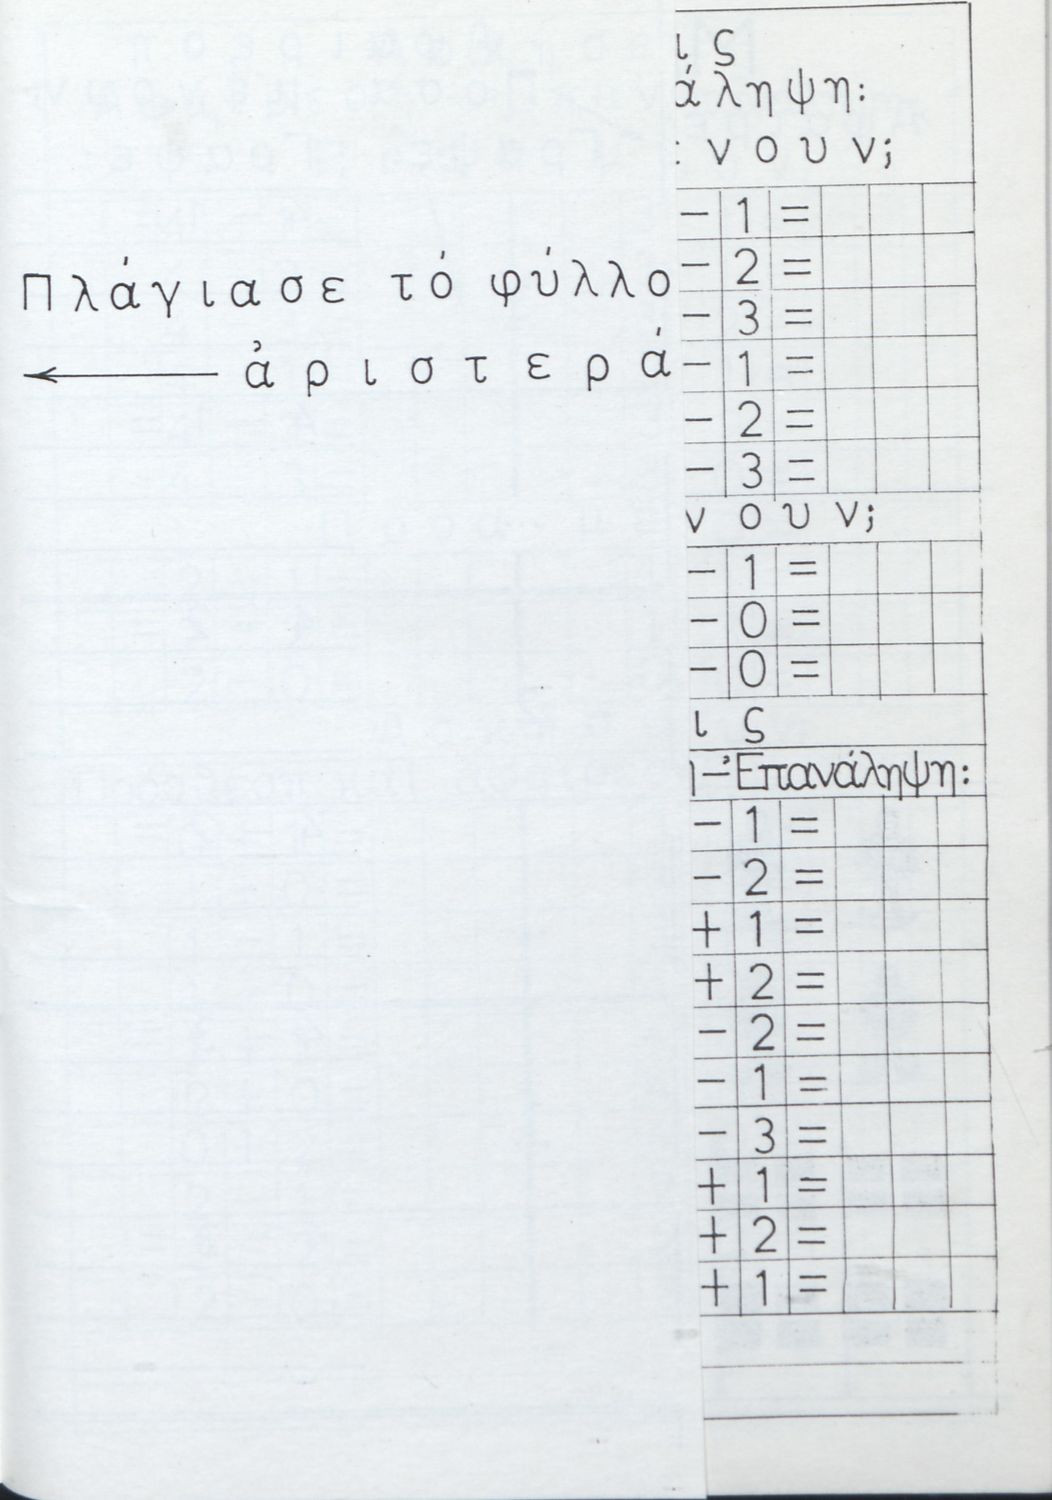 Πλάγιασε τό φύλλο
ἀριστερά
ις
άληψη:
νουν;
- 1 =
- 2 =
- 3 =
- 1 =
- 2 =
- 3 =
νουν;
- 1 =
- 0 =
- 0 =
ις
-Ἐπανάληψη:
- 1 =
- 2 =
+ 1 =
+ 2 =
- 2 =
- 1 =
- 3 =
+ 1 =
+ 2 =
+ 1 =